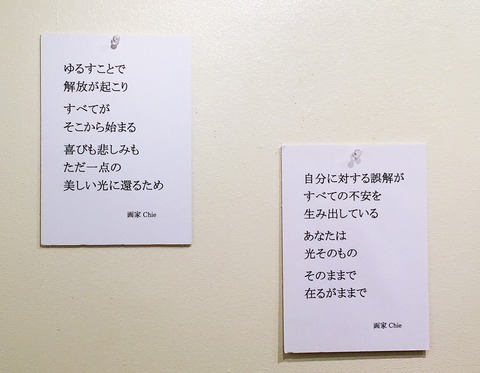 ゆるすことで
解放が起こり
すべてが
そこから始まる
喜びも悲しみも
ただ一点の
美しい光に還るため
画家 Chie
自分に対する誤解が
すべての不安を
生み出している
あなたは
光そのもの
そのままで
在るがままで
画家 Chie